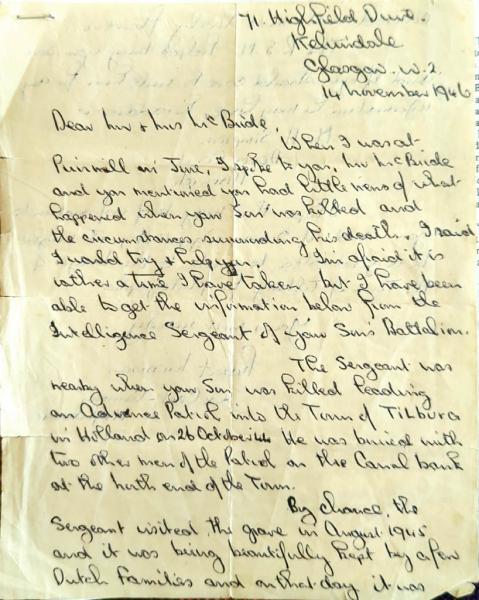 71. Highfield Drive.
Kelvindale
Glasgow. W.2.
14 November 1946
Dear Mr & Mrs McBride,
When I was at
in June, I spoke to you, Mr McBride
and you mentioned you had little news of what
happened when your Son was killed and
the circumstances surrounding his death. I said
I would try & help you. I'm afraid it is
rather a time I have taken but I have been
able to get the information below from the
Intelligence Sergeant of your Son's Battalion.
The Sergeant was
nearby when your Son was killed leading
an Advance Patrol into the Town of TILBURG
in Holland on 26 October 44. He was buried with
two other men of the Patrol on the Canal bank
at the north end of the Town.
By chance, the
Sergeant visited the grave in August 1945
and it was being beautifully kept by a few
Dutch Families and on that day it was